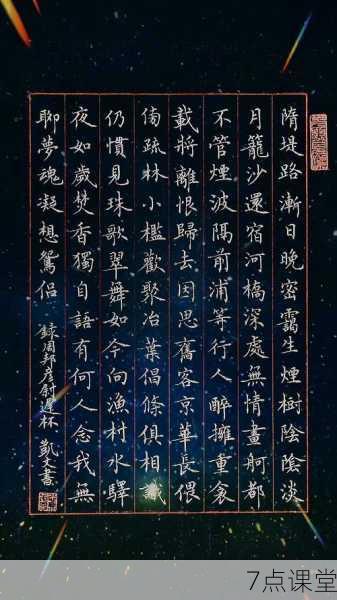 隋堤路漸日晚密靄生煙樹陰陰淡
月籠沙還宿河橋深處無情畫舸都
不管煙波隔前浦等行人醉擁重衾
載將離恨歸去因思舊客京華長偎
傍疏林小檻歡聚冶葉倡條俱相識
仍慣見珠歌翠舞如今向漁村水驛
夜如歲焚香獨自語有何人念我無
聊夢魂凝想鴛侶 錄周邦彥尉遲杯 凱文書
7点课堂